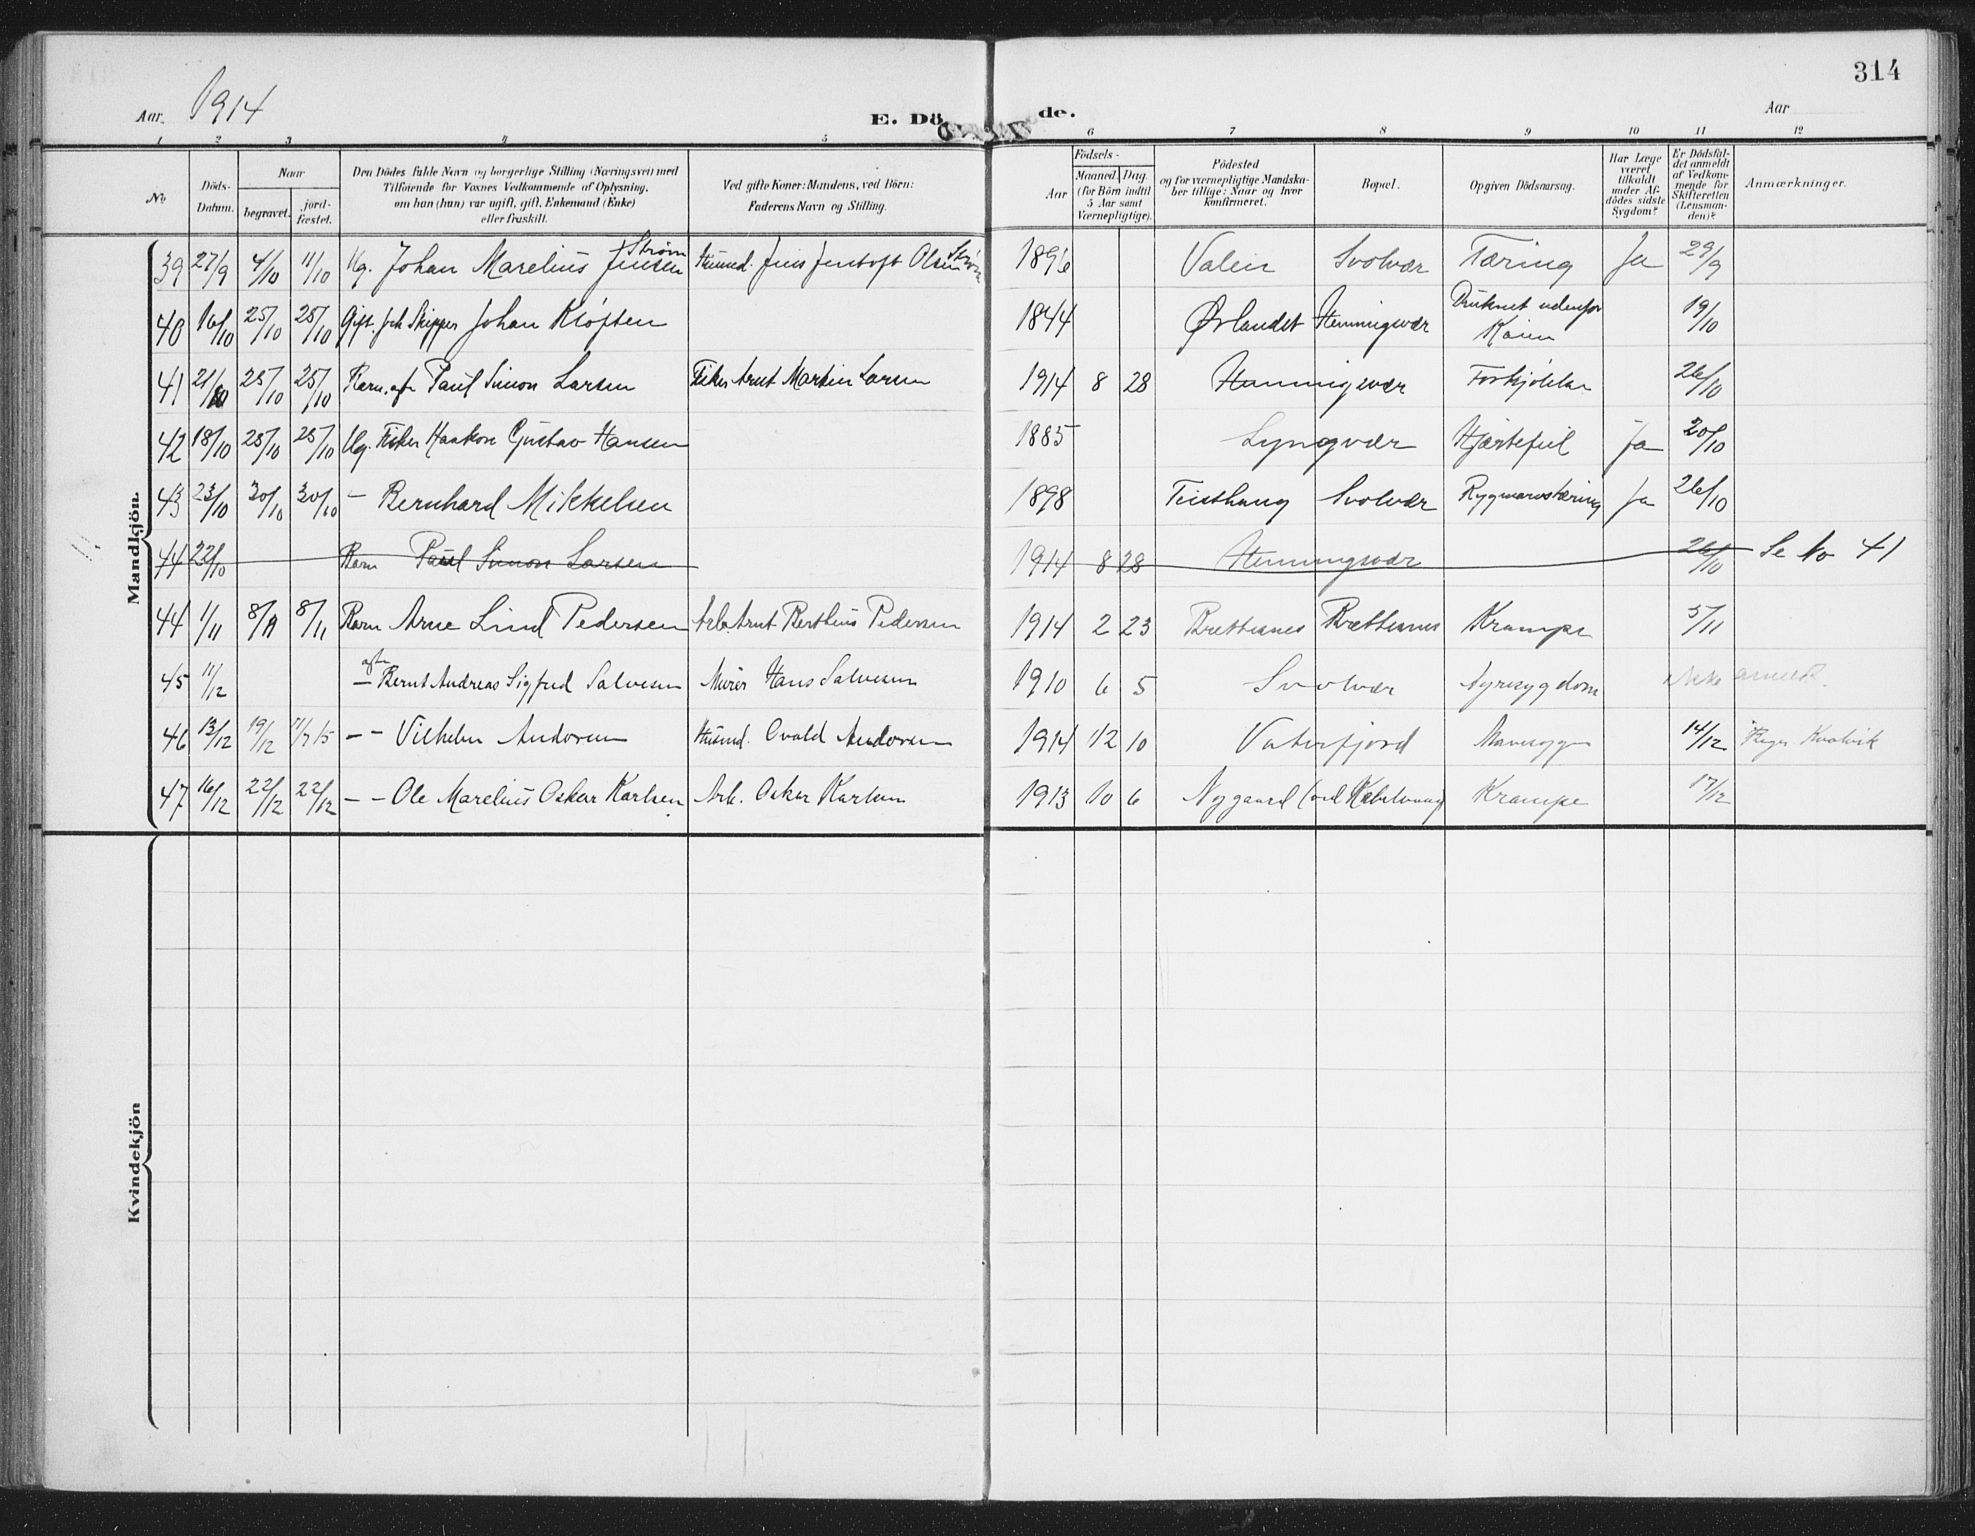 314
Aar 1914
E. Döde.
Aar
1 2 3 4 5 6 7 8 9 10 11 12
No
Döds-Datum.
Naar
begravet.
jordfæstet.
Den Dödes fulde Navn og borgerlige Stilling (Næringsvei) med
Tilföiende for Voxnes Vedkommende af Oplysning,
om han (hun) var ugift, gift, Enkemand (Enke)
eller fraskilt.
Ved gifte Koner: Mandens, ved Börn:
Faderens Navn og Stilling.
Födsels-
Aar
Maaned. Dag
(for Börn indtil
5 Aar samt
Værnepligtige).
Födested
og for værnepligtige Mandska-
ber tillige: Naar og hvor
konfirmeret.
Bopæl.
Opgiven Dödsaarsag.
Har Læge
været
tilkaldt
under Af-
dödes sidste
Sygdom?
Er Dödsfal-
det anmeldt
af Vedkom-
mende for
Skifteretten
(Lensman-
den)?
Anmærkninger.
Mandkjön.
39 27/9 4/10 11/10 Ug. Johan Marelius Jensen Strøm Husmd. Jens Jentoft Olsen Strøm 1896 Valen Svolvær Tæring Ja 29/9
40 16/10 25/10 25/10 Gift. fhv Skipper Johan Kløften 1844 Ørlandet Henningsvær Druknet udenfor Kaien 19/10
41 21/10 25/10 25/10 Barn. af Paul Simon Larsen Fisker Arnt Martin Larsen 1914 8 28 Henningsvær Forkjølelse 26/10
42 18/10 25/10 25/10 Ug. Fisker Haakon Gustav Hansen 1885 Lyngvær Hjertefeil Ja 20/10
43 23/10 30/10 30/10 — Bernhard Mikkelsen 1898 Svolvær Rygmarvstæring Ja 26/10
44 22/10 Barn Paul Simon Larsen 1914 8 28 Henningsvær 26/10 Se No 41
44 1/11 8/11 8/11 Barn Arne Lind Pedersen Arb. Arnt Berthius Pedersen 1914 2 23 Brettesnes Brettesnes Krampe 5/11
45 11/12 — Bernt Andreas Sigfred Salvesen Murer Hans Salvesen 1910 6 5 Svolvær Nyresygdom ikke anmeldt.
46 13/12 19/12 11/7 15 — — Vilhelm Andersen Husmd. Osvald Andersen 1914 12 10 Vaterfjord Mavesyge 14/12
47 16/12 22/12 22/12 — — Ole Marelius Oskar Karlsen Arb. Oskar Karlsen 1913 10 6 Nygaard (ved Kabelvaag) Krampe 17/12
Kvindekjön